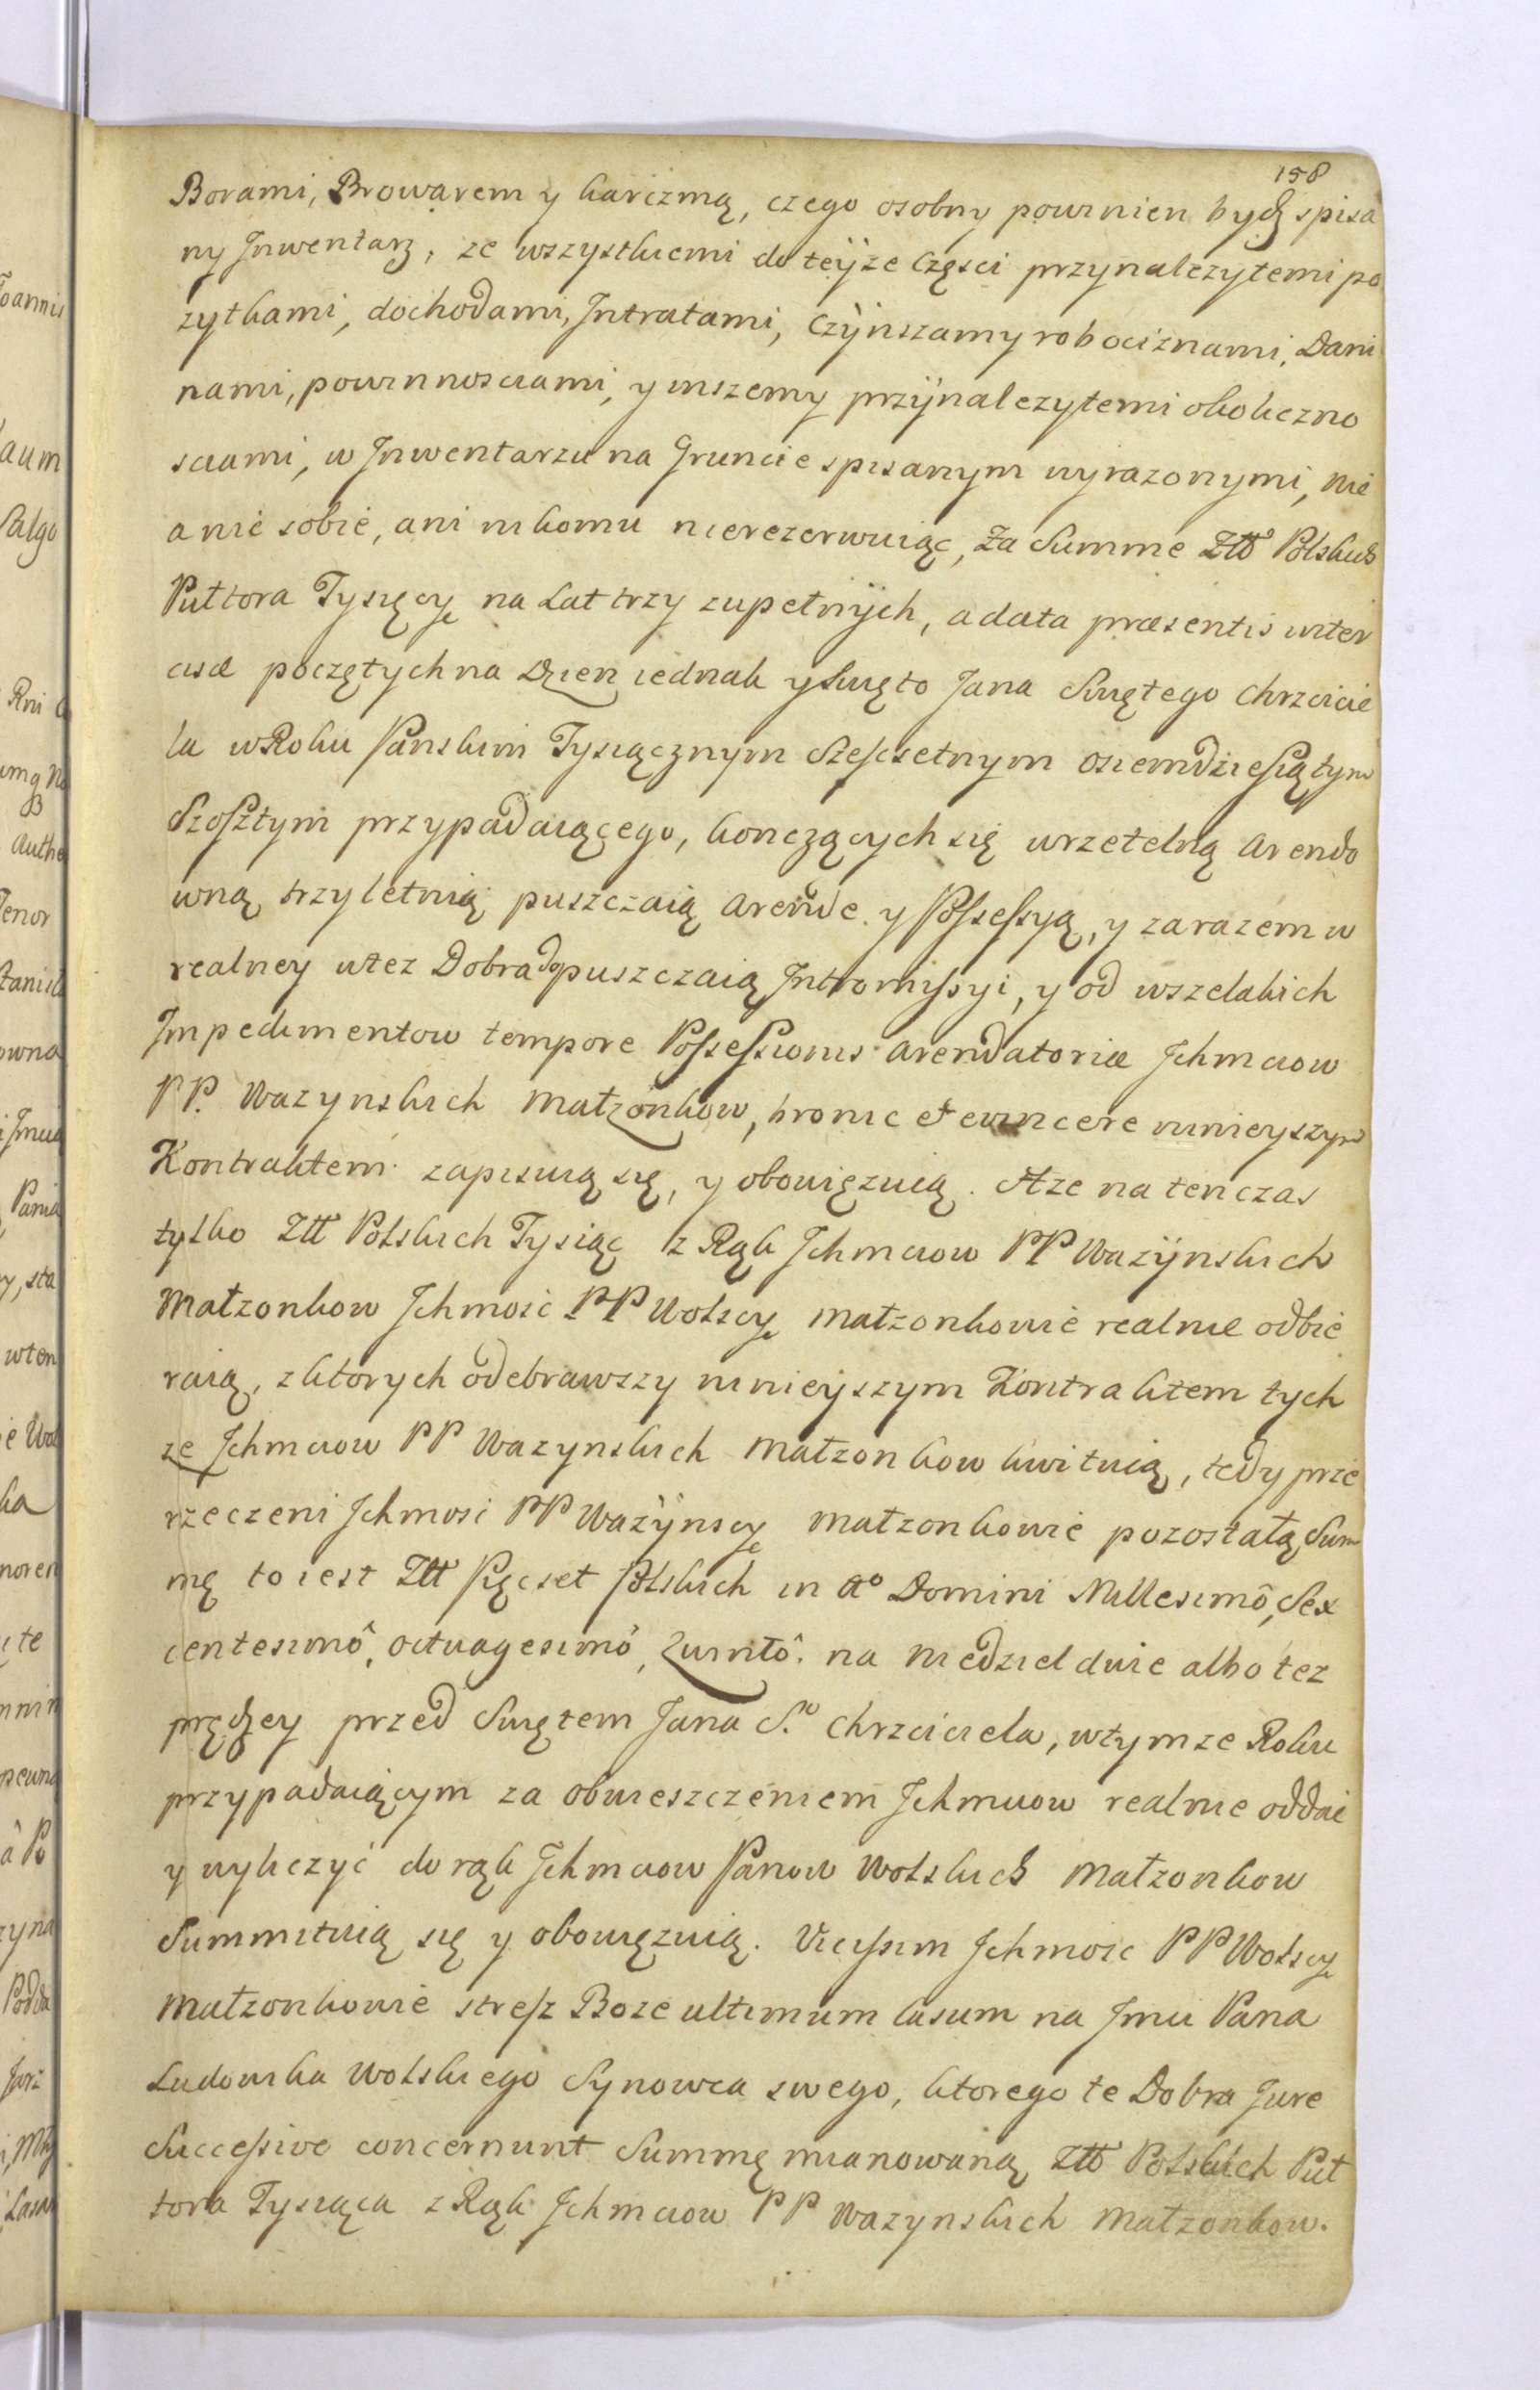 158
Borami, Browarem y karczmą, czego osobny powinien bydz spisa
ny Jnwentarz, ze wszystkiemi do teÿze Częsci przynalezytemi po
zytkami, dochodami, Jntratami, Czÿnszamy robociznami, Dani
nami, powinnosciami, y inszemy przÿnalezytemi okoliczno
sciami, w Jnwentarzu na Gruncie spisanym wyrazonymi, nic
a nic sobie, ani nikomu nierezerwuiąc, Za Summe Ztt Polskich
Puttora Tysięcy na Lat trzy zupełnÿch, a data præsentis inter
cisæ poczętych na Dzien iednak y Swięto Jana Swiętego Chrzcicie
la w Roku Panskim Tysiącznym Szescsetnym osiemdziesiątym
Szosztym przypadaiącego, konczących się wrzetelną Arendo
wną trzyletnią puszczaią Arende y Possessyą, y zarazem w
realney w tez Dobra dopuszczaią Jntromissyi, y od wszelakich
Jmpedimentow tempore Possessionis Arendatoriæ Jchmciow
PP. Wazynskich Małzonkow, bronic et evincere ninieyszym
Kontraktem zapisuią się, y obowięzuią. A ze na ten czas
tylko Ztt Polskich Tysiąc z Rąk Jchmciow PP Wazÿnskich
Małzonkow Jchmosc PP Wolscy Małzonkowie realnie odbie
raią, z ktorych odebrawszy ninieyszym Kontraktem tych
ze Jchmciow PP Wazynskich Małzonkow kwituią, tedy prze
rzeczeni Jchmosc PP Wazÿnscy Małzonkowie pozostałą Sum
mę to iest Ztt Pięcset Polskich in Aº Domini Millesimô, Sex
centesimô, octuagesimô, Quintô. na Niedziel dwie albo tez
prędzey przed Swiętem Jana S.º Chrzciciela, w tymze Roku
przypadaiącym za obwieszczeniem Jchmciow realnie oddac
y wyliczyć do rąk Jchmciow Panow Wolskich Małzonkow
Summituią się y obowięzuią. Vicissim Jchmosc PP Wolscy
Małzonkowie stresz Boze ultimum casum na Jmci Pana
Ludowika Wolskiego Synowca swego, ktorego te Dobra Jure
Successivo concernunt Summę mianowaną Ztt Polskich Puł
tora Tysiąca z Rąk Jchmciow PP Wazynskich Małzonkow.